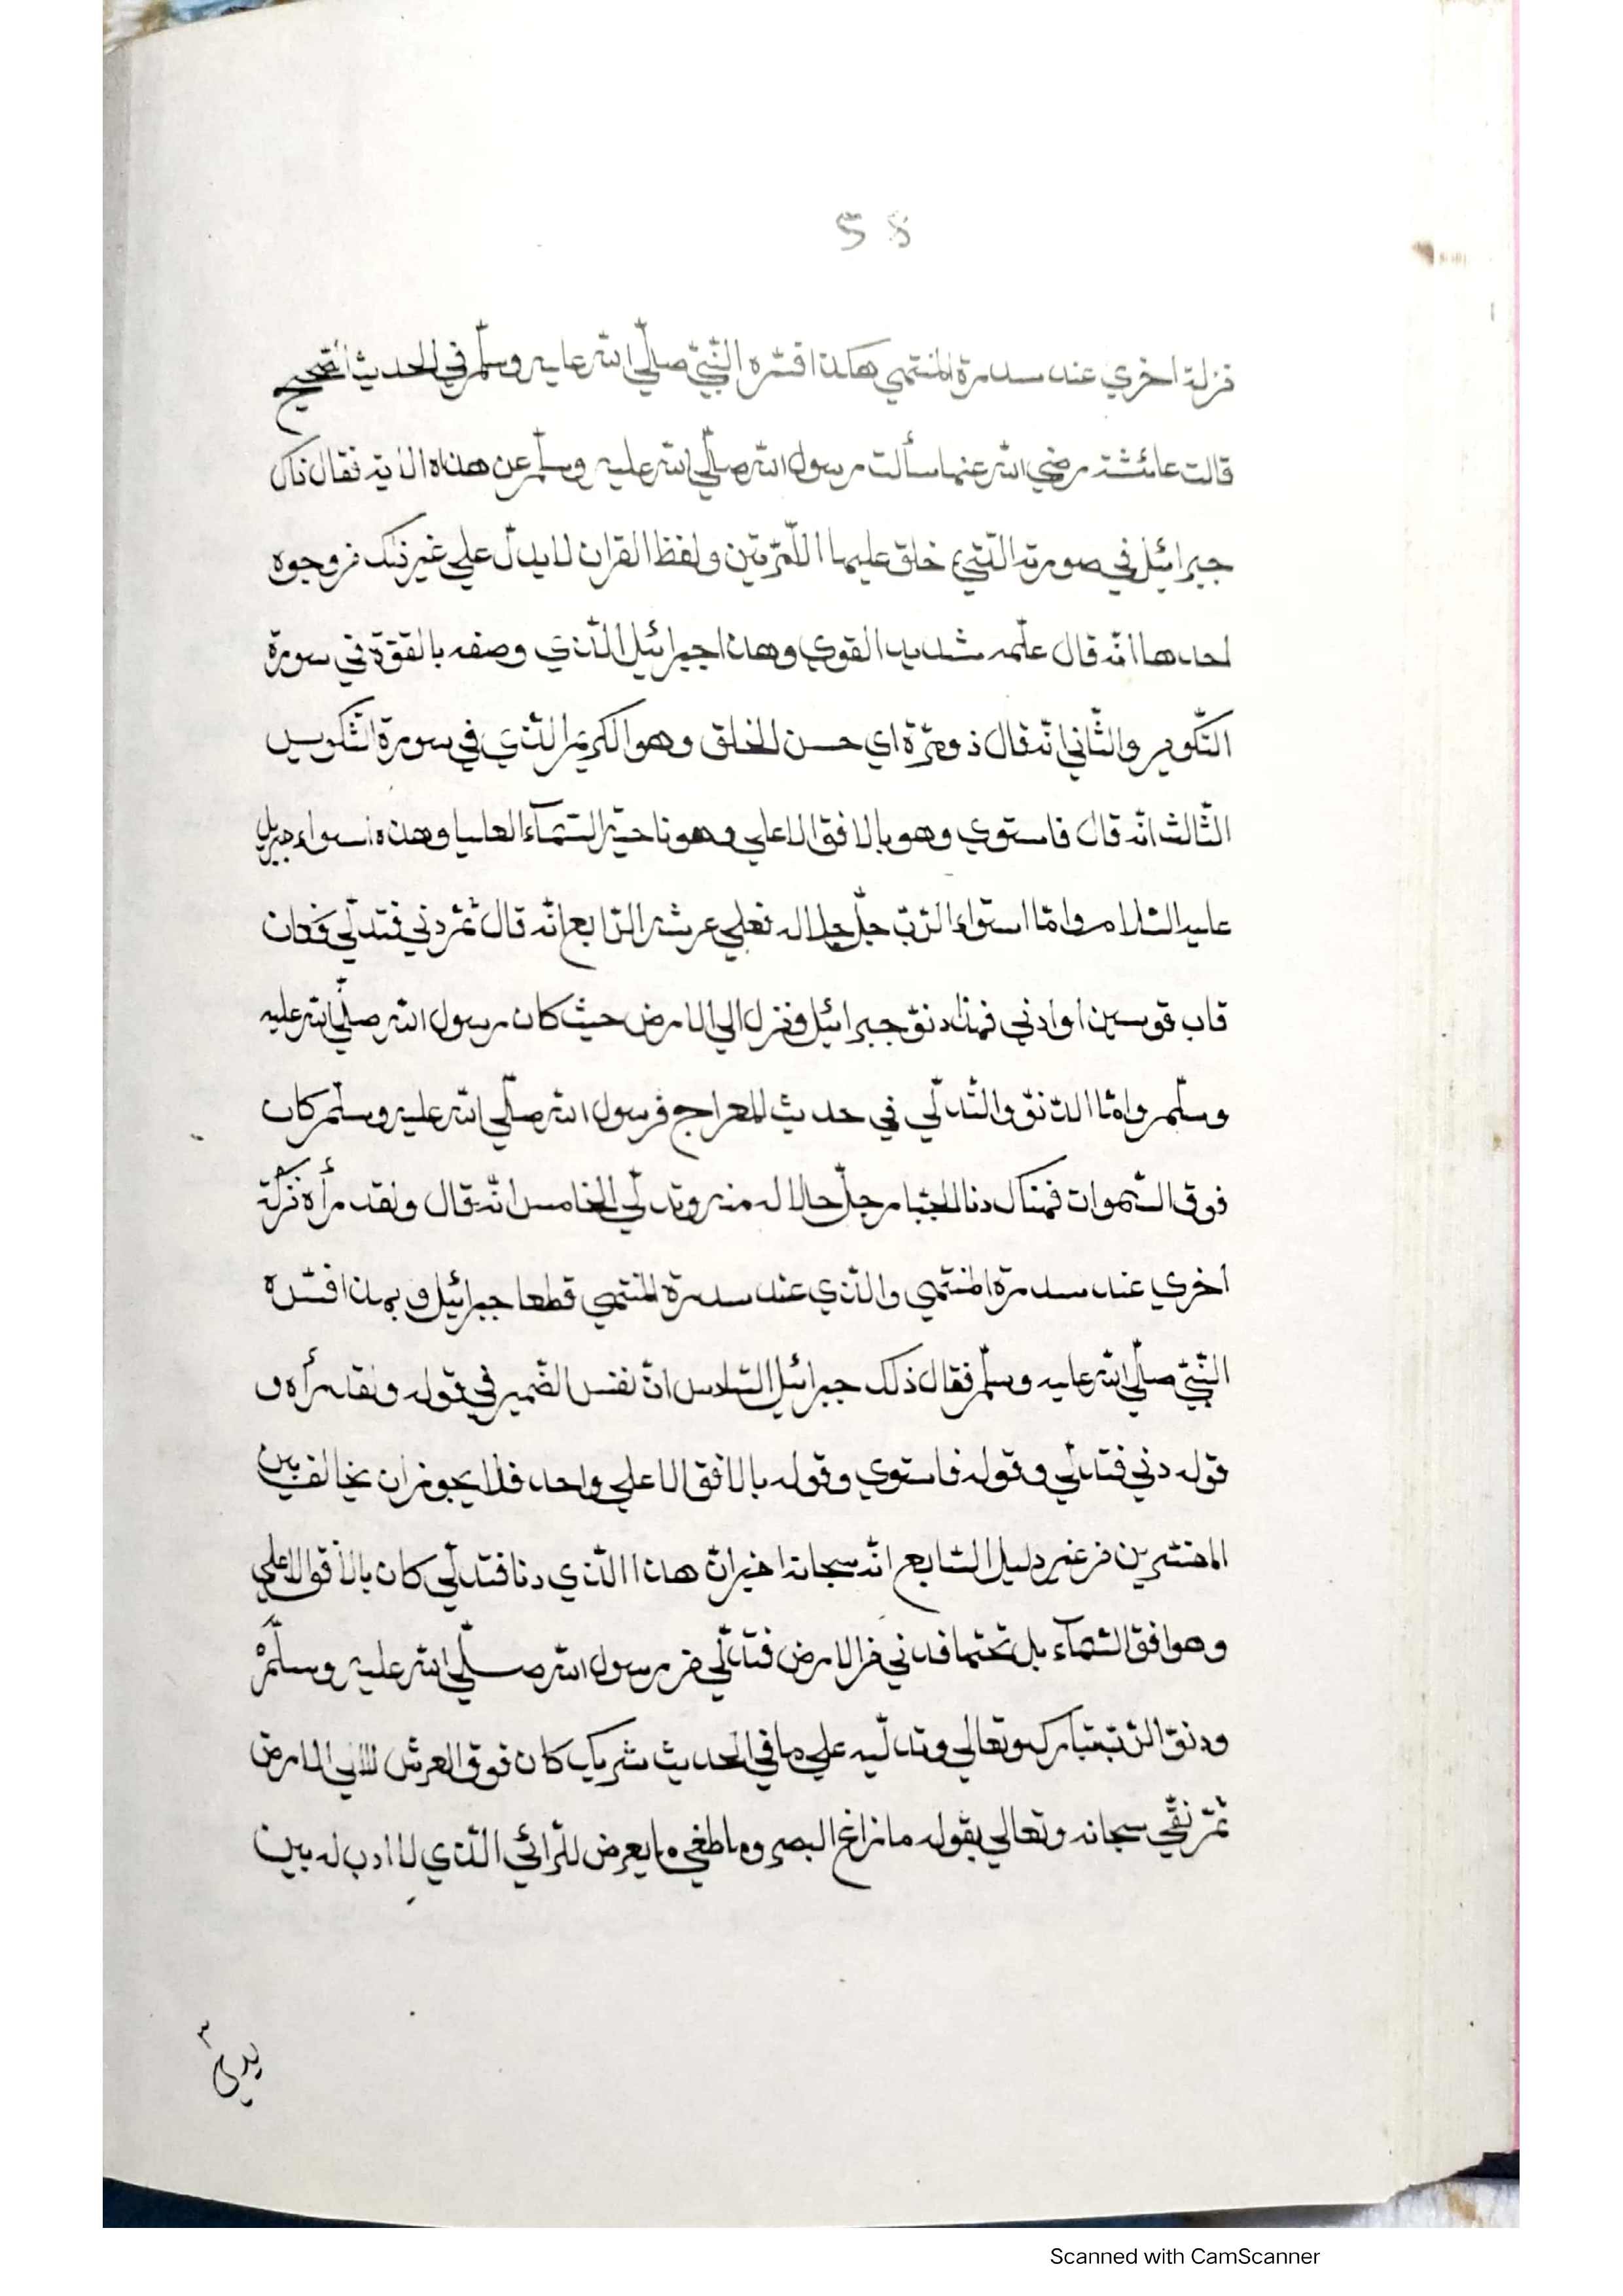 58
نزلة اخري عند سدرة المنتهي هكذا فسّره النّبيّ صلّي الله عليه وسلّم في الحديث الصّحيح
قالت عائشة رضي الله عنها سألت رسول الله صلّي الله عليه وسلّم عن هذه الاية فقال ذاك
جبرائيل في صورته الّتي خلق عليها المرّتين ولفظ القران لا يدلّ علي غير ذلك من وجوه
احدها انّه قال علّمه شديد القوي وهذا جبرائيل الّذي وصفه بالقوّة في سورة
التّكوير والثّاني انّه قال ذو مرّة اي حسن الخلق وهو الكريم الّذي في سورة التّكوير
الثّالث انّه قال فاستوي وهو بالافق الاعلي وهو ناحية السّمآء العليا وهذه استواء جبريل
عليه السّلام وامّا استواء الرّبّ جلّ جلاله فعلي عرشه الرّابع انّه قال ثمّ دني فتدلّي فكان
قاب قوسين او ادني فهذا دنوّ جبرائيل ونزل الي الارض حيث كان رسول الله صلّي الله عليه
وسلّم وامّا الدّنوّ والتّدلّي في حديث المعراج فرسول الله صلّي الله عليه وسلّم كان
فوق السّموات فهناك دنا الجبّار جلّ جلاله منه وتدلّي الخامس انّه قال ولقد رأه نزلة
اخري عند سدرة المنتهي والّذي عند سدرة المنتهي قطعا جبرائيل و بهذا فسّره
النّبيّ صلّي الله عليه وسلّم فقال ذلك جبرائيل السّادس انّ نفس الضّمير في قوله ولقد رأه و
قوله دني فتدلّي وقوله فاستوي وقوله بالافق الاعلي واحد فلا يجوز ان يخالف بين
المفسّرين من غير دليل السّابع انّه سبحانه اخبر انّ هذا الّذي دنا فتدلّي كان بالافق الاعلي
وهو افق السّمآء بل تحتها فدني من الارض فتدلّي من رسول الله صلّي الله عليه وسلّم
ودنوّ الرّبّ تبارك وتعالي وتدلّيه علي ما في الحديث شريك كان فوق العرش لا الي الارض
ثمّ نفي سبحانه وتعالي بقوله ما زاغ البصر وما طغي ما يعرض للرّائي الّذي لا ادب له بين
يدي
Scanned with CamScanner